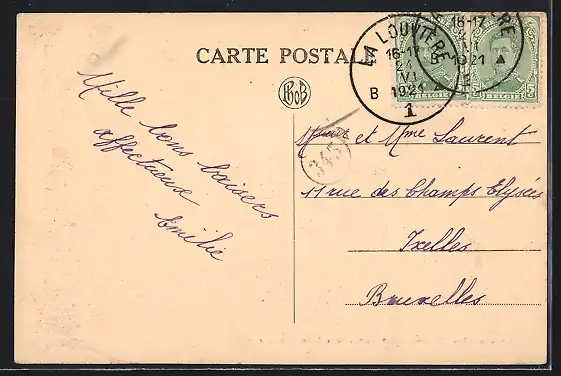 CARTE POSTALE
LA LOUVIÈRE
16-17
24
VI
B 1921
1
16-17
B 1921
BELGIË
345
Mille bons baisers
affectueux
Emilie
et Mme Laurent
11 rue des Champs Elysées
Ixelles
Bruxelles